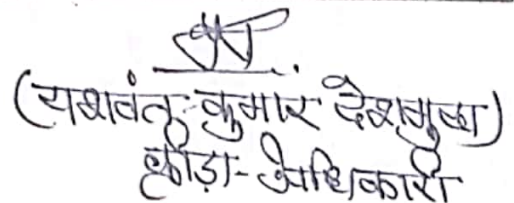 (यशवंत कुमार देशमुख)
क्रीड़ा-अधिकारी